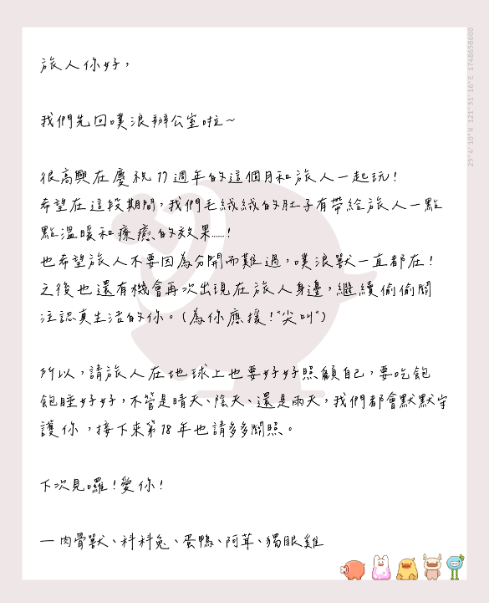 旅人你好，
我們先回噗浪辦公室啦～
很高興在慶祝17週年的這個月和旅人一起玩！
希望在這段期間，我們毛絨絨的肚子有帶給旅人一點
點溫暖和療癒的效果……！
也希望旅人不要因為分開而難過，噗浪獸一直都在！
之後也還有機會再次出現在旅人身邊，繼續偷偷關
注認真生活的你。（為你應援！"尖叫"）
所以，請旅人在地球上也要好好照顧自己，要吃飽
飽睡好好，不管是晴天、陰天、還是雨天，我們都會默默守
護你，接下來第18年也請多多關照。
下次見囉！愛你！
— 肉骨獸、科科兔、蛋鴨、阿茸、獨眼雞
25°2'10"N 121°31'16"E 1748698600